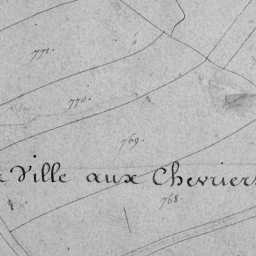 771.
770.
769.
Ville aux Chevriers
768